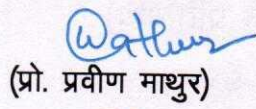 (प्रो. प्रवीण माथुर)